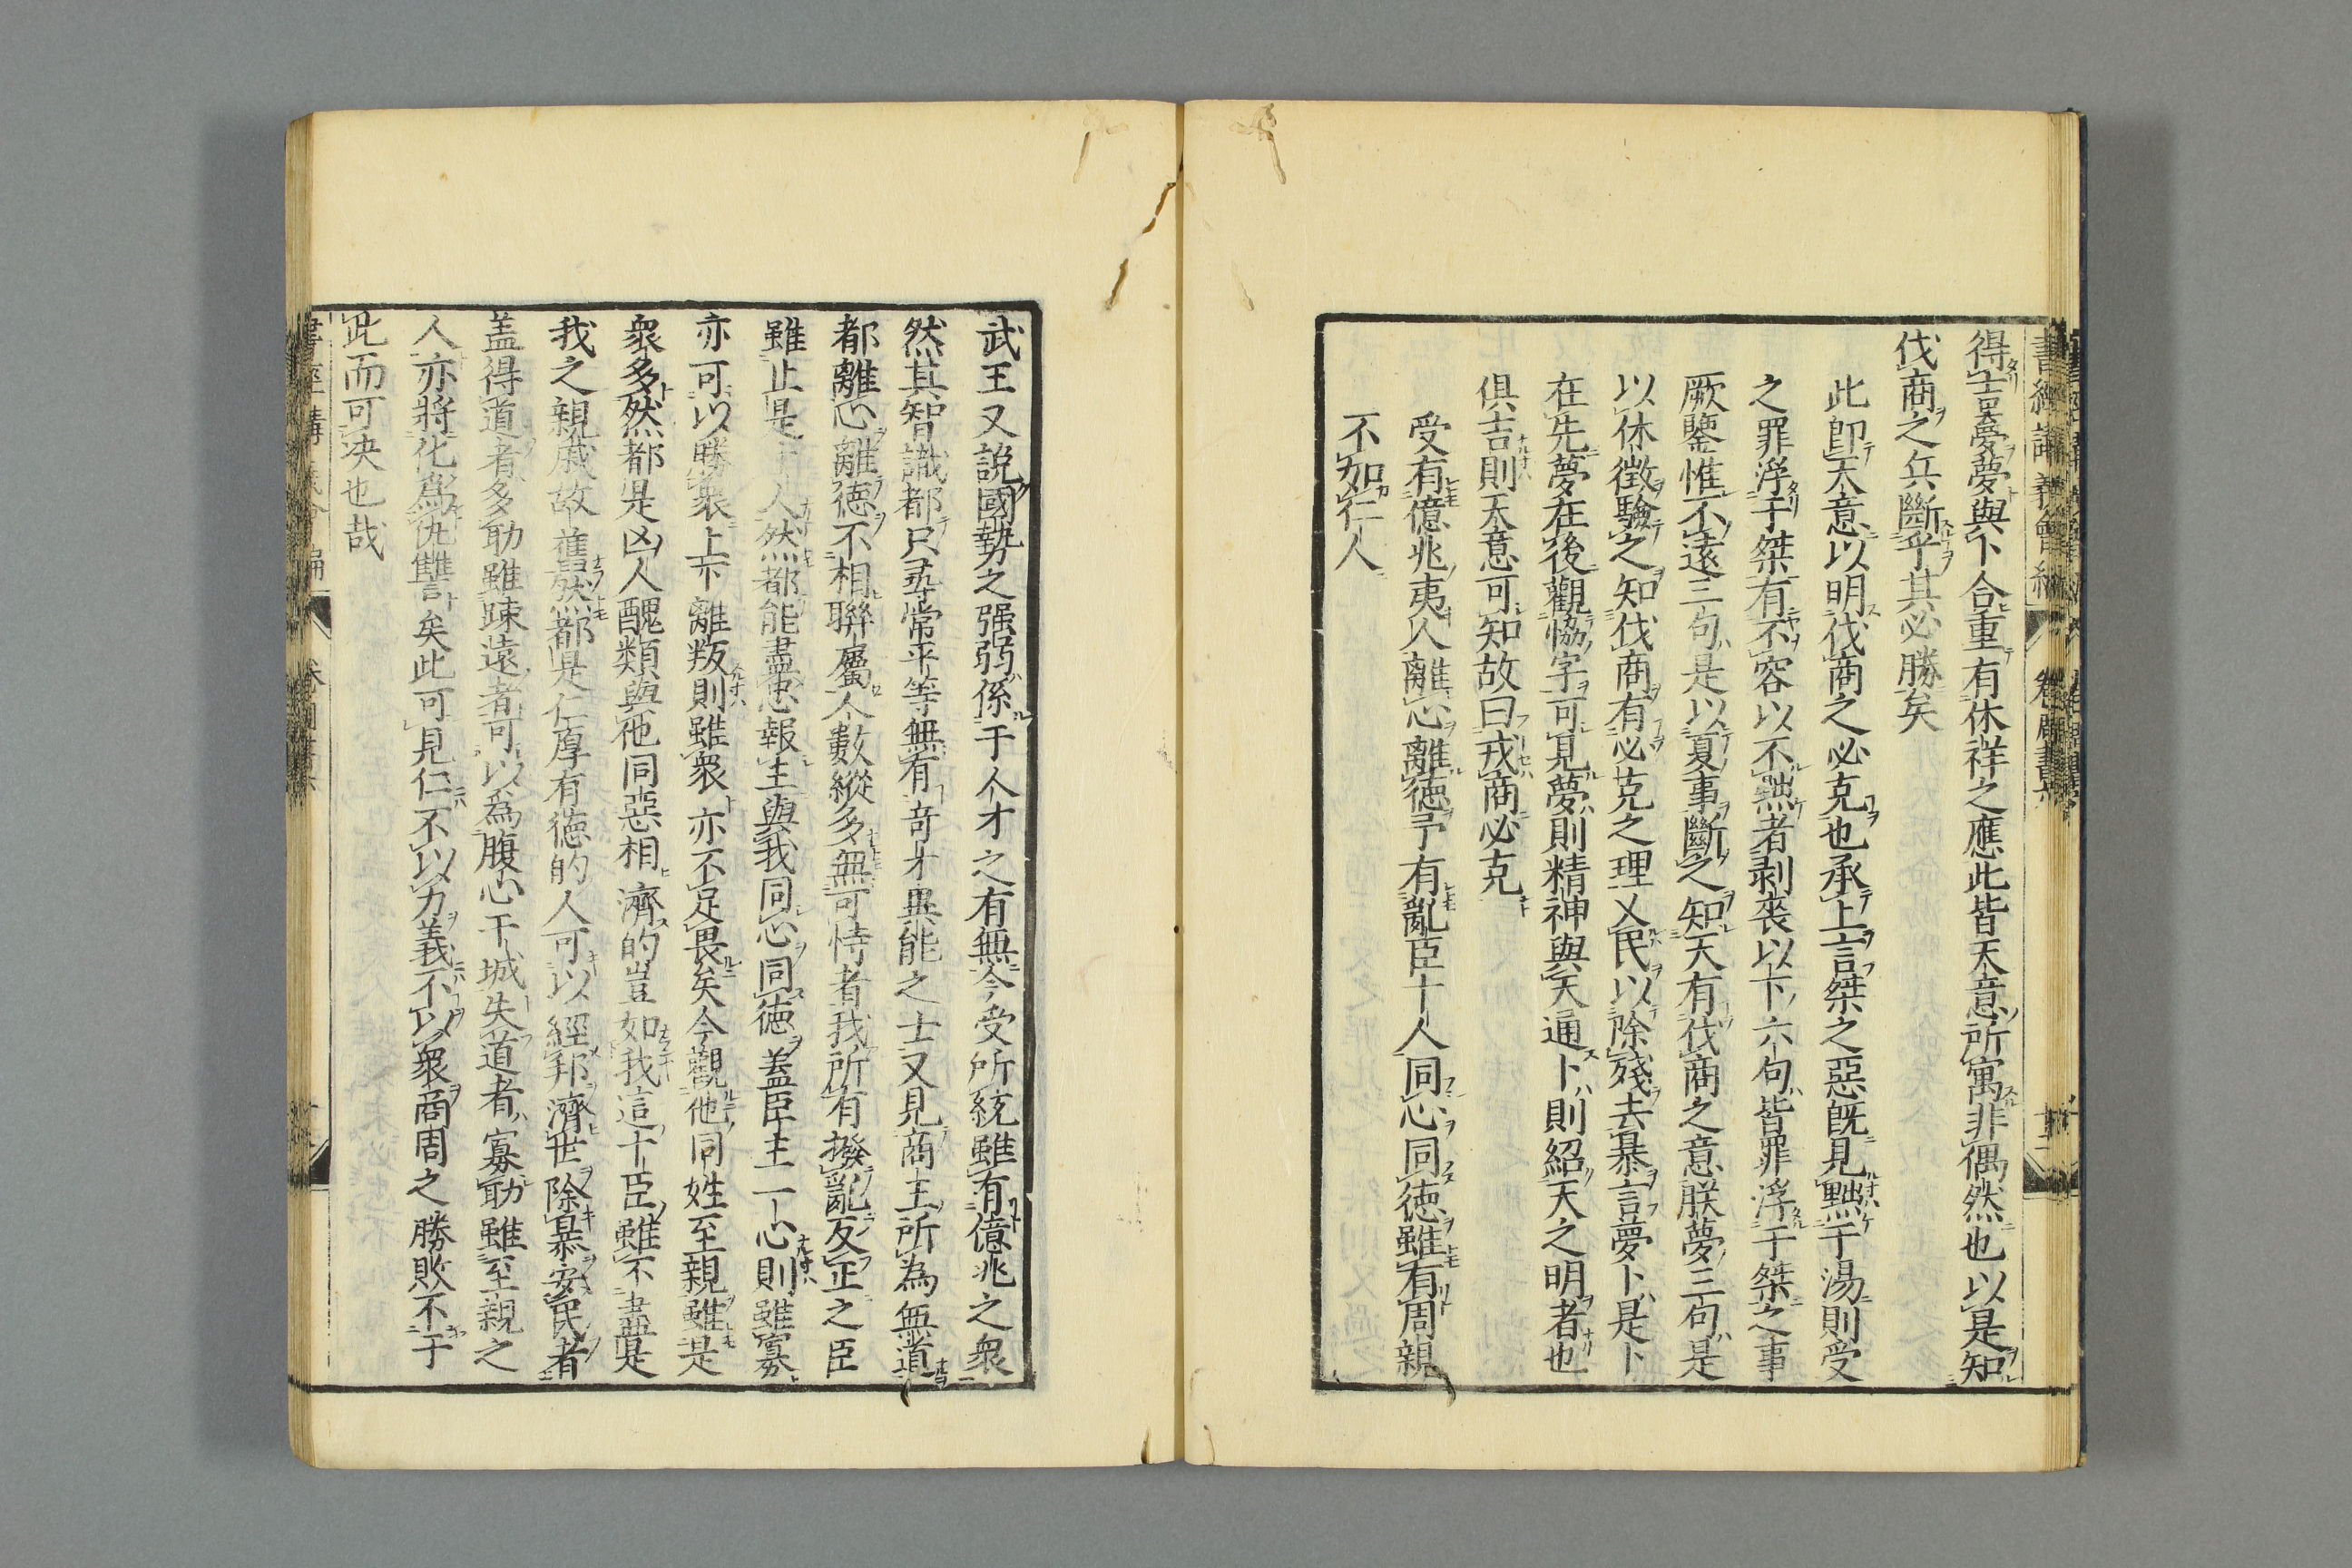 書經講義會編　卷
得吉夢夢與卜合重有休祥之應此皆天意所寓非偶然也以是知
伐商之兵斷乎其必勝矣
此卽天意以明伐商之必克也承上言桀之惡旣見黜于湯則受
之罪浮于桀有不容以不黜者剥喪以下六句皆罪浮于桀之事
厥鑒惟不遠三句是以夏事斷之知天有伐商之意朕夢三句是
以休徵驗之知伐商有必克之理乂民以除殘去暴言夢卜是卜
在先夢在後觀恊字可見夢則精神與天通卜則紹天之明者也
俱吉則天意可知故曰戎商必克
受有億兆夷人離心離德予有亂臣十人同心同德雖有周親
不如仁人
武王又說國勢之强弱係于人才之有無今受所統雖有億兆之衆
然其智識都只尋常平等無有奇才異能之士又見商王所為無道
都離心離德不相聯屬人數縱多無可恃者我所有撥亂反正之臣
雖止是十人然都能盡忠報主與我同心同德蓋臣主一心則雖寡
亦可以勝衆上下離叛則雖衆亦不足畏矣今觀他同姓至親雖是
衆多然都是凶人醜類與他同惡相濟的豈如我這十臣雖不盡是
我之親戚故舊然都是仁厚有德的人可以經邦濟世除暴安民者
盖得道者多助雖踈遠者可以爲腹心干城失道者寡助雖至親之
人亦將化爲仇讐矣此可見仁不以力義不以衆商周之勝敗不于
此而可决也哉
書經講義會編　卷